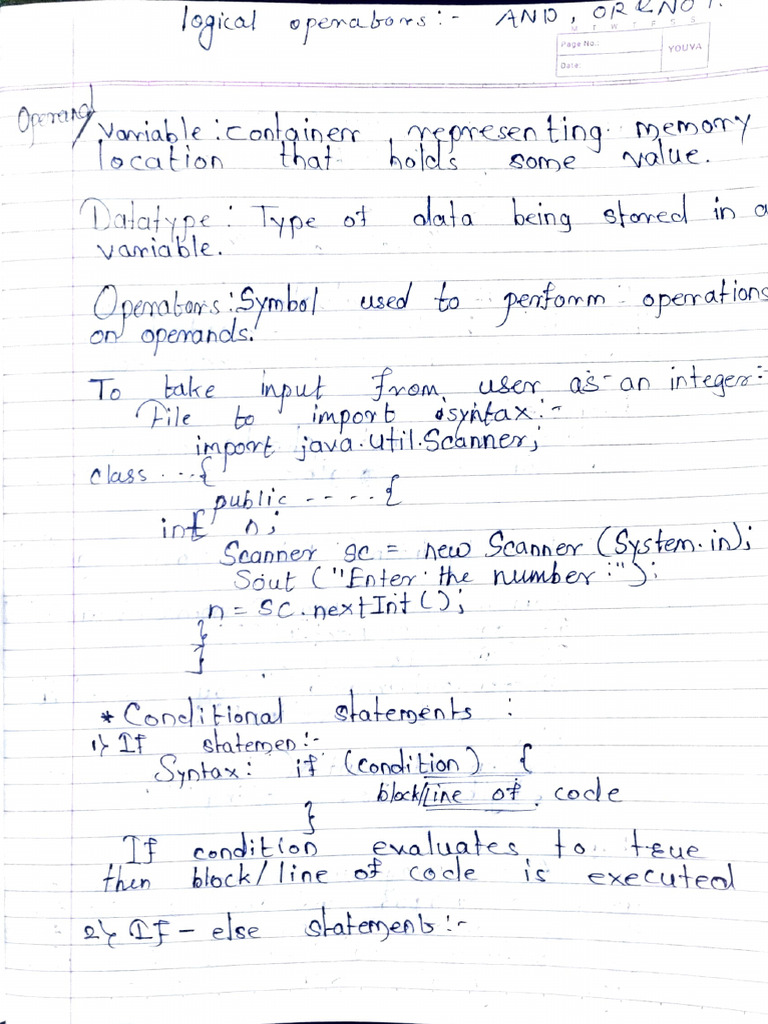 logical operators:- AND, OR & NOT.
M T W T F S S
Page No.:
YOUVA
Date:
Operand/
variable: container representing memory
location that holds some value.
Datatype: Type of data being stored in a
variable.
Operators: Symbol used to perform operations
on operands.
To take input from user as an integer:-
File to import syntax:-
import java.util.Scanner;
class ...{
public ----{
int n;
Scanner sc = new Scanner (System.in);
Sout ("Enter the number:");
n = sc.nextInt();
}
}
* Conditional statements :
1) If statemen:-
Syntax: if (condition) {
block/line of code
}
If condition evaluates to true
then block/line of code is executed
2) If - else statements:-